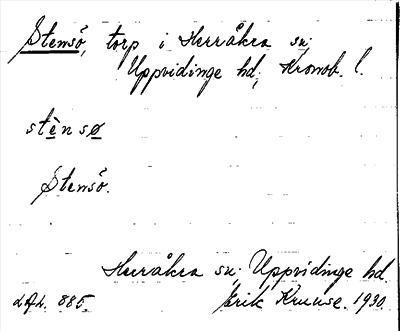 Stensö, torp i Herråkra sn;
Uppvidinge hd; Kronob. l.
stènsø
Stensö.
Herråkra sn; Uppvidinge hd.
LAL. 885. Erik Kruuse. 1930